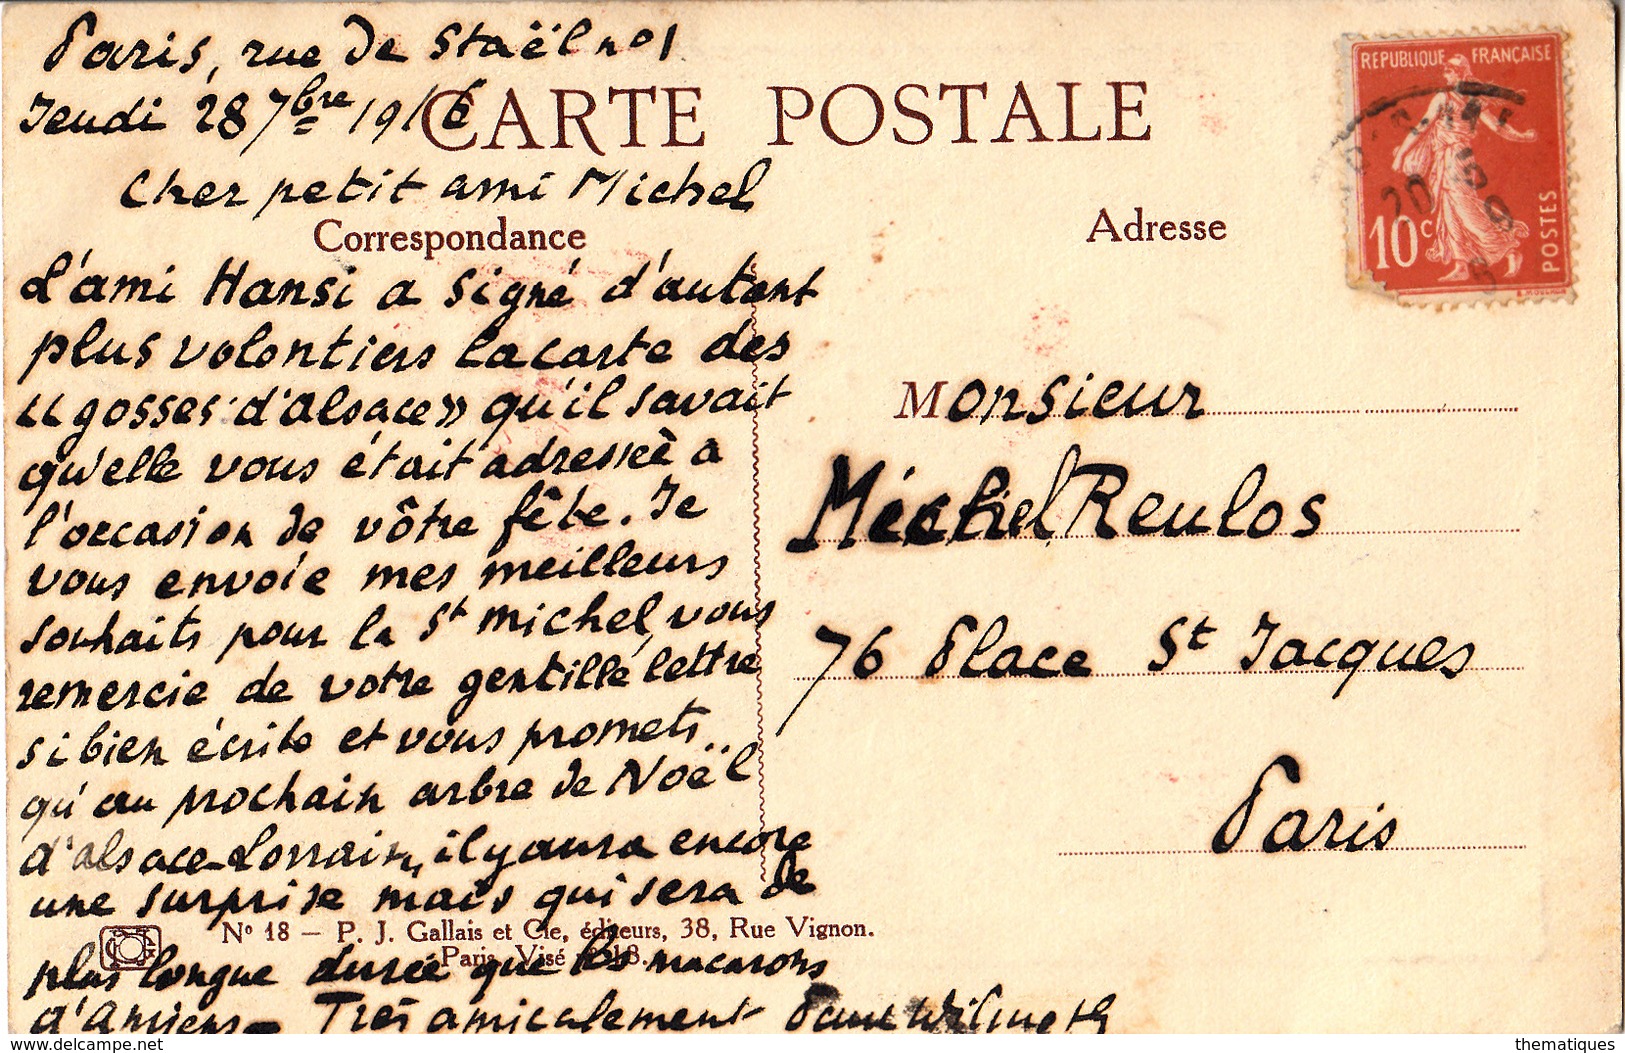 Paris, rue de Staël no 1
Jeudi 28 7bre 1916
CARTE POSTALE
Cher petit ami Michel
Correspondance
L'ami Hansi a signé d'autant
plus volontiers la carte des
"gosses d'alsace" qu'il savait
qu'elle vous était adressée à
l'occasion de vôtre fête. Je
vous envoie mes meilleurs
souhaits pour la St Michel, vous
remercie de votre gentille lettre
si bien écrite et vous promets
qu'au prochain arbre de Noël
d'alsace-Lorrain, il y aura encore
une surprise mais qui sera de
plus longue durée que les macarons
d'Amiens - Très amicalement Paul Wilmoth
No 18 — P. J. Gallais et Cie, éditeurs, 38, Rue Vignon.
Paris. Visé
REPUBLIQUE FRANÇAISE
10c
POSTES
Adresse
Monsieur
Michel Reulos
76 Place St Jacques
Paris
www.delcampe.net
thematiques